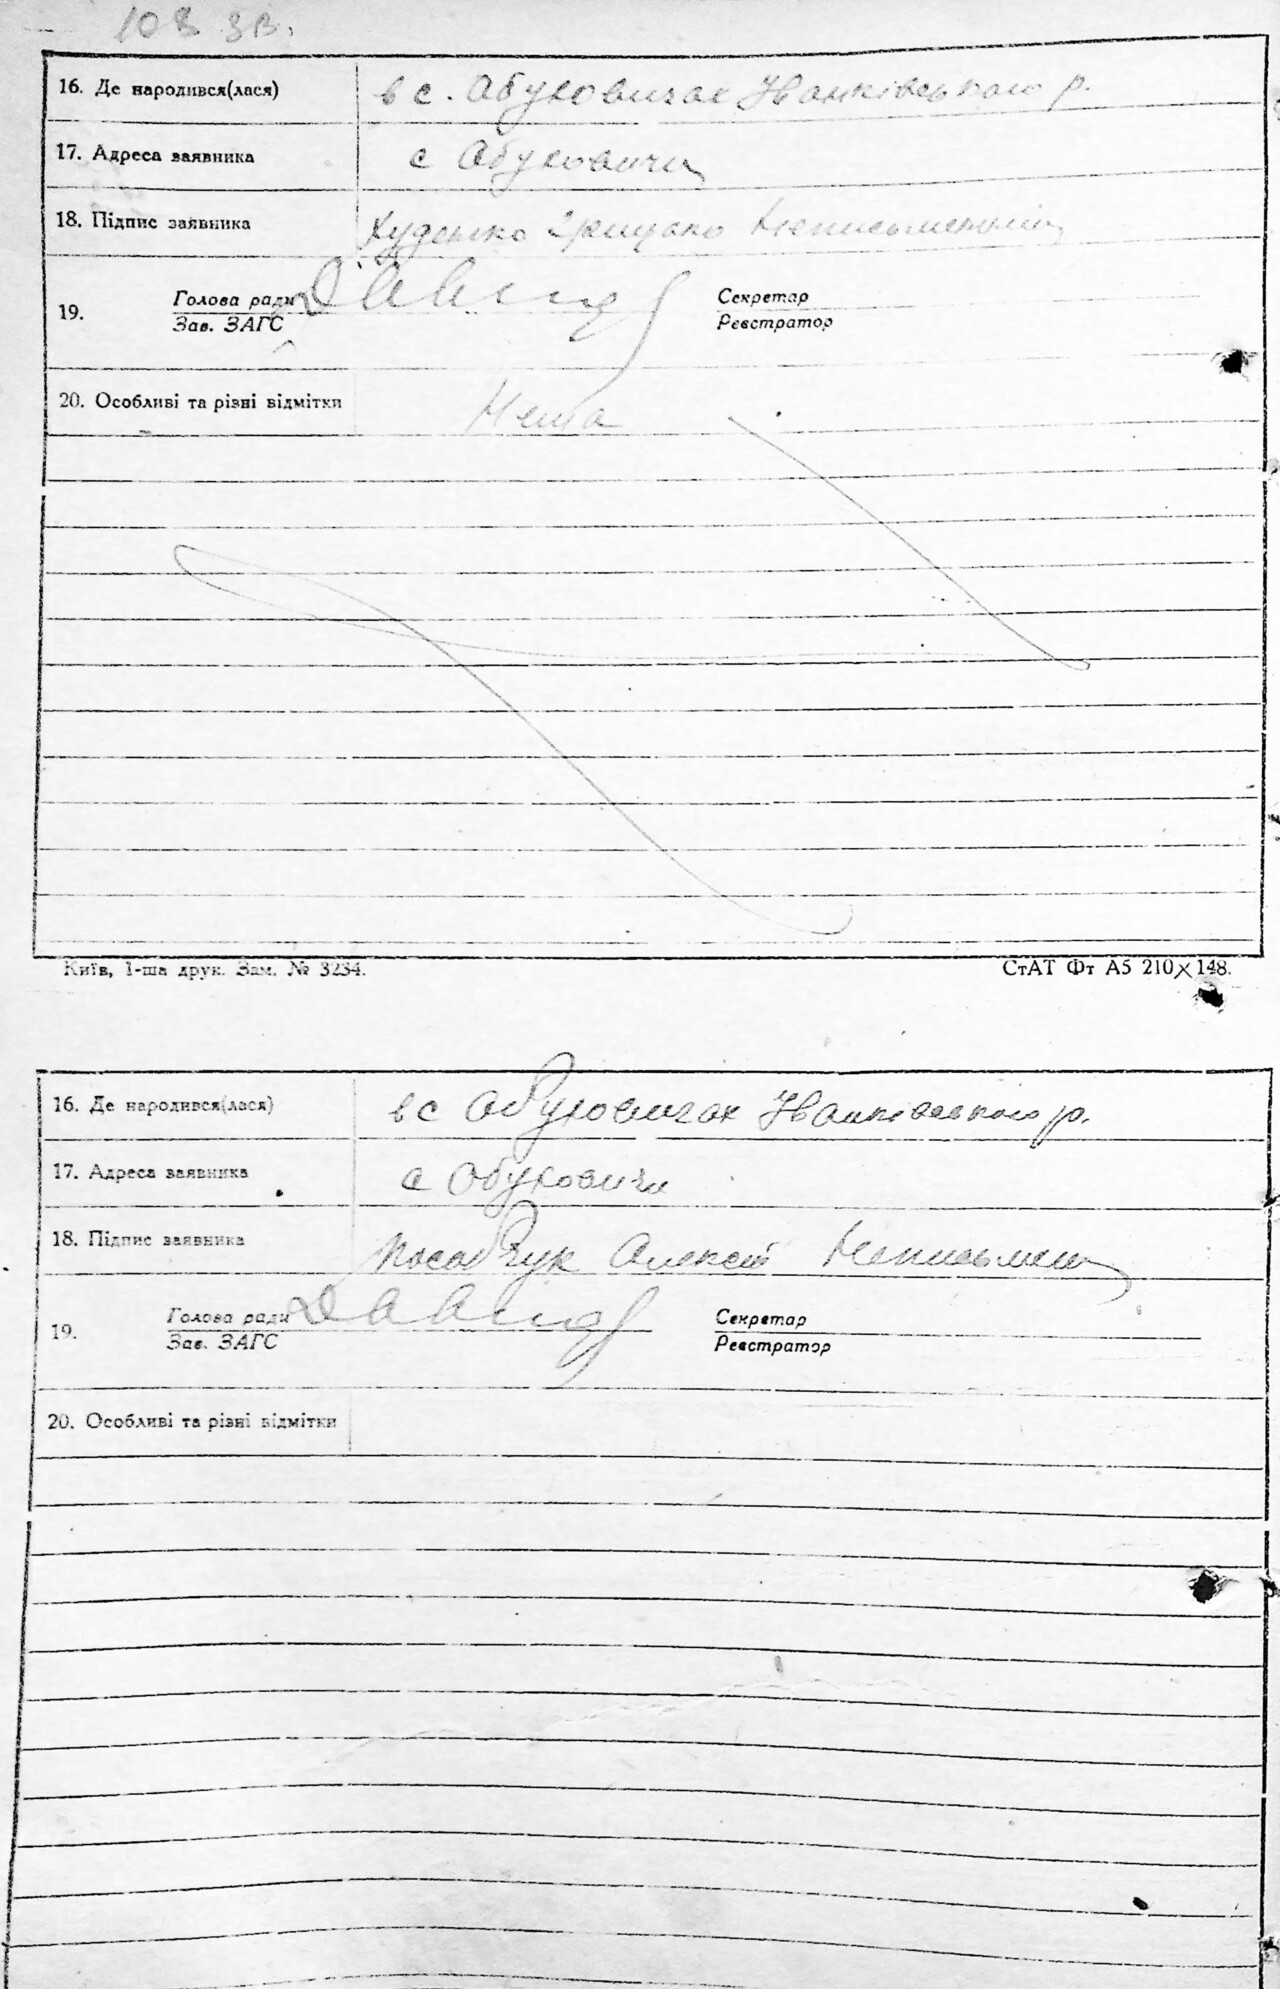 108 зв.
16. Де народився(лася) в с. Абуховичах Іванківського р.
17. Адреса заявника с Абуховичи
18. Підпис заявника Худенко Грицько Неписьменний
19. Голова ради Секретар
Зав. ЗАГС Реєстратор
20. Особливі та різні відмітки Нема
Київ, 1-ша друк. Зам. № 3234. СтАТ Фт А5 210×148.
16. Де народився(лася) в с Абуховичах Іванківського р.
17. Адреса заявника с Обуховичи
18. Підпис заявника Алексій Неписьмен
19. Голова ради Секретар
Зав. ЗАГС Реєстратор
20. Особливі та різні відмітки